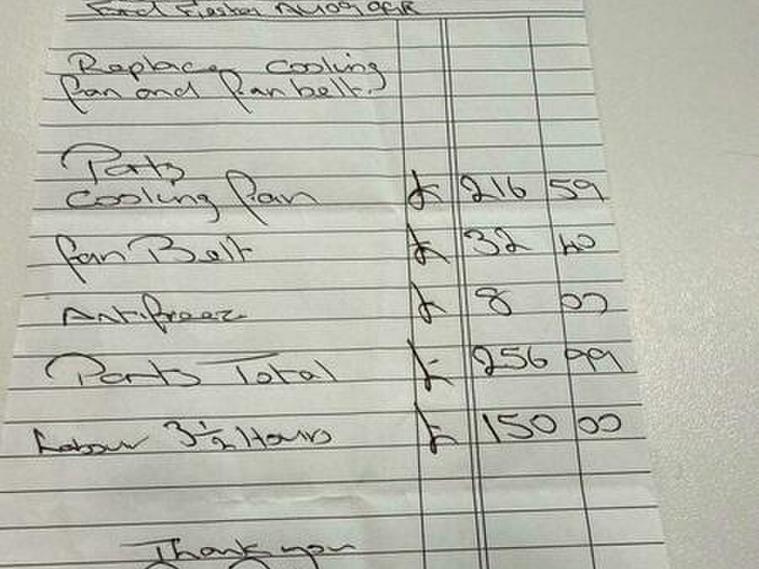 Ford Fiesta
Replace Cooling
fan and fan belt.
Parts
Cooling fan £ 216 59
fan Belt £ 32 40
Antifreeze £ 8 00
Parts Total £ 256 99
Labour 3½ Hours £ 150 00
Thank you